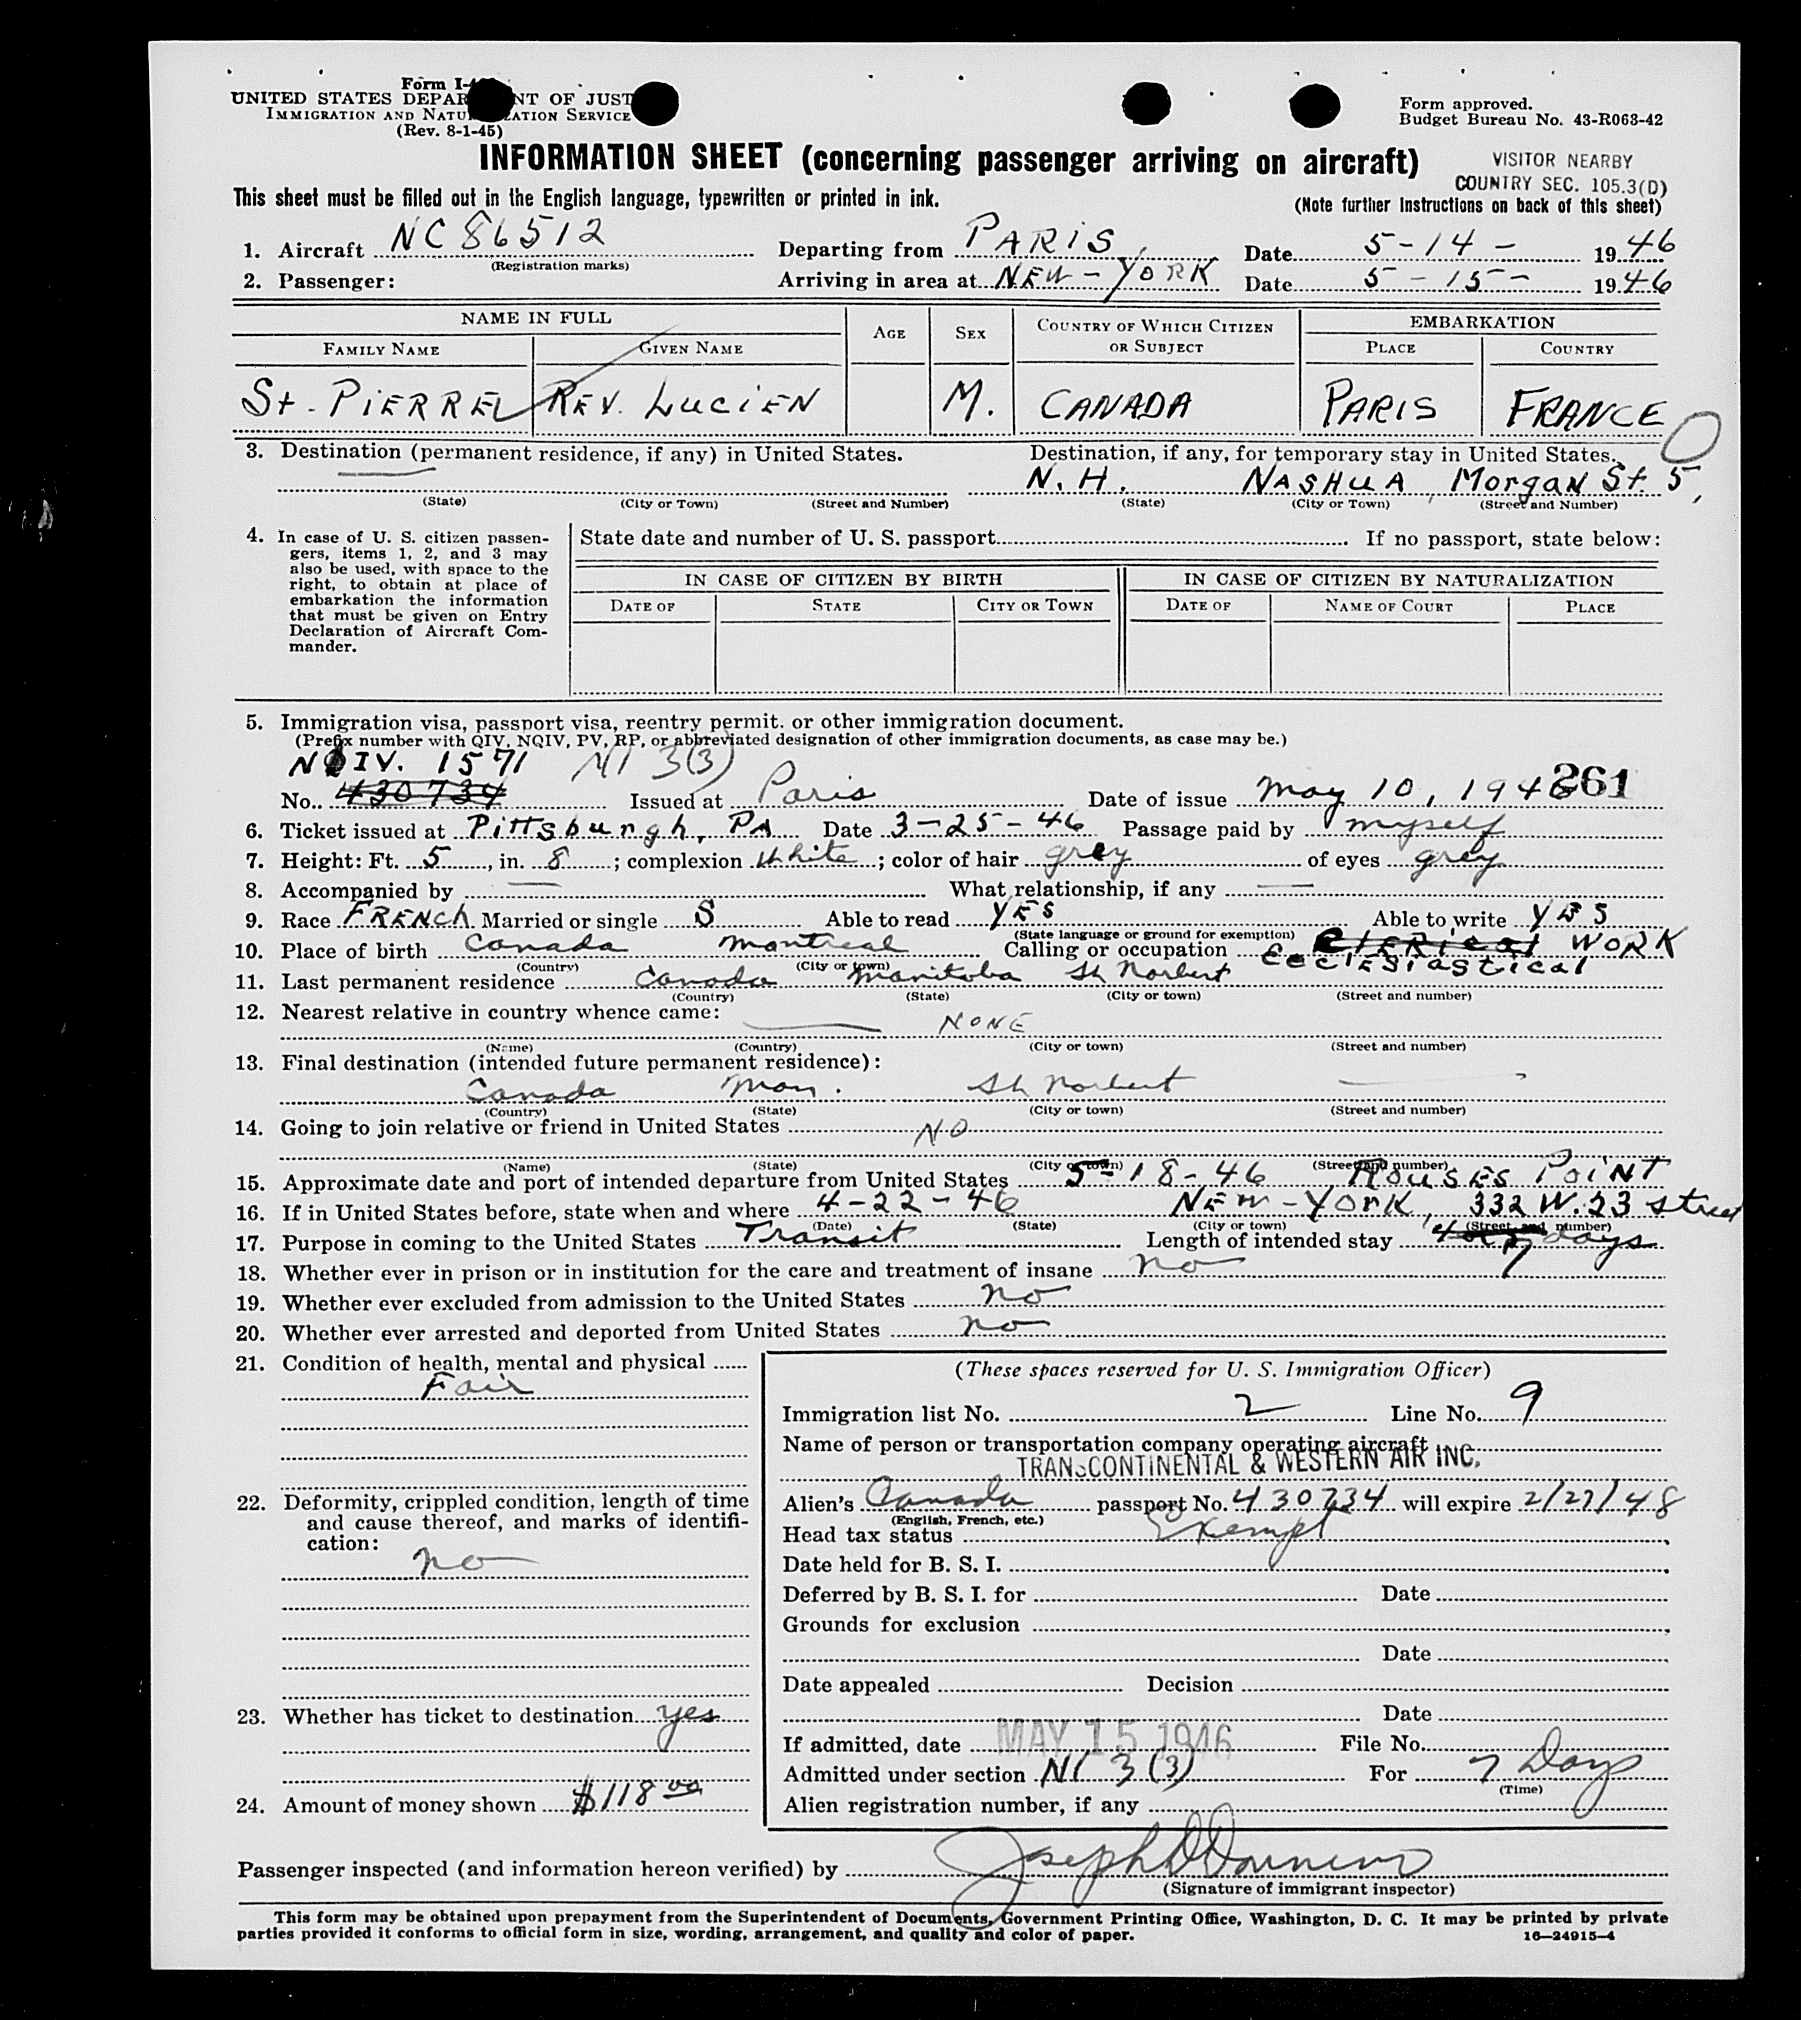 Form I-4
UNITED STATES DEPAR NT OF JUST
IMMIGRATION AND NATU ATION SERVICE
(Rev. 8-1-45)
Form approved.
Budget Bureau No. 43-R063-42
INFORMATION SHEET (concerning passenger arriving on aircraft)
VISITOR NEARBY
COUNTRY SEC. 105.3(D)
This sheet must be filled out in the English language, typewritten or printed in ink.
(Note further instructions on back of this sheet)
1. Aircraft NC 86512 Departing from PARIS, Date 5-14- 1946
(Registration marks)
2. Passenger: Arriving in area at NEW-YORK Date 5-15- 1946
NAME IN FULL AGE SEX COUNTRY OF WHICH CITIZEN OR SUBJECT EMBARKATION
FAMILY NAME GIVEN NAME PLACE COUNTRY
St-PIERRE REV. LUCIEN M. CANADA PARIS FRANCE
3. Destination (permanent residence, if any) in United States. Destination, if any, for temporary stay in United States.
N.H. NASHUA, Morgan St. 5,
(State) (City or Town) (Street and Number) (State) (City or Town) (Street and Number)
4. In case of U. S. citizen passengers, items 1, 2, and 3 may also be used, with space to the right, to obtain at place of embarkation the information that must be given on Entry Declaration of Aircraft Commander.
State date and number of U. S. passport If no passport, state below:
IN CASE OF CITIZEN BY BIRTH IN CASE OF CITIZEN BY NATURALIZATION
DATE OF STATE CITY OR TOWN DATE OF NAME OF COURT PLACE
5. Immigration visa, passport visa, reentry permit. or other immigration document.
(Prefix number with QIV, NQIV, PV, RP, or abbreviated designation of other immigration documents, as case may be.)
NQIV. 1571 NI 3(3)
No. 430734 Issued at Paris Date of issue May 10, 1946 261
6. Ticket issued at Pittsburgh, PA Date 3-25-46 Passage paid by myself
7. Height: Ft. 5, in. 8; complexion White; color of hair grey of eyes grey
8. Accompanied by — What relationship, if any —
9. Race FRENCH Married or single S Able to read YES Able to write YES
(State language or ground for exemption)
10. Place of birth Canada Montreal Calling or occupation clerical WORK
Ecclesiastical
(Country) (City or town)
11. Last permanent residence Canada Manitoba St Norbert
(Country) (State) (City or town) (Street and number)
12. Nearest relative in country whence came: — NONE
(Name) (Country) (City or town) (Street and number)
13. Final destination (intended future permanent residence):
Canada Man. St Norbert —
(Country) (State) (City or town) (Street and number)
14. Going to join relative or friend in United States NO
(Name) (State) (City or town) (Street and number)
15. Approximate date and port of intended departure from United States 5-18-46 ROUSES POINT
16. If in United States before, state when and where 4-22-46 NEW-YORK, 332 W. 23 street
(Date) (State) (City or town) (Street and number)
17. Purpose in coming to the United States Transit Length of intended stay 7 days
18. Whether ever in prison or in institution for the care and treatment of insane no
19. Whether ever excluded from admission to the United States no
20. Whether ever arrested and deported from United States no
21. Condition of health, mental and physical
Fair
22. Deformity, crippled condition, length of time and cause thereof, and marks of identification:
no
23. Whether has ticket to destination yes
24. Amount of money shown $118 00
(These spaces reserved for U. S. Immigration Officer)
Immigration list No. 2 Line No. 9
Name of person or transportation company operating aircraft
TRANSCONTINENTAL & WESTERN AIR INC.
Alien's Canada passport No. 430734 will expire 2/27/48
(English, French, etc.)
Head tax status Exempt
Date held for B. S. I.
Deferred by B. S. I. for Date
Grounds for exclusion
Date
Date appealed Decision
Date
If admitted, date MAY 15 1946 File No.
Admitted under section NI 3(3) For 7 Days
(Time)
Alien registration number, if any
Passenger inspected (and information hereon verified) by Joseph D
(Signature of immigrant inspector)
This form may be obtained upon prepayment from the Superintendent of Documents, Government Printing Office, Washington, D. C. It may be printed by private
parties provided it conforms to official form in size, wording, arrangement, and quality and color of paper.
16—24915-4